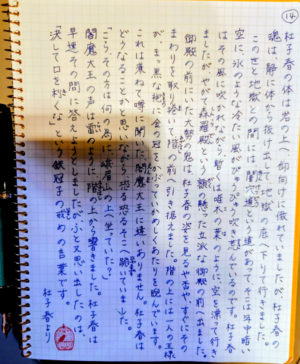 ⑭
杜子春の体は岩の上へ仰向けに倒れてましたが杜子春の
魂は、静に体から抜け出して地獄の底へ下りて行きました。
この世と地獄との間には闇穴道という道があってそこは年中暗い
空に、氷のような冷たい風がぴゅうぴゅう吹き荒んでいるのです。杜子春
はその風に吹かれながら、暫くは唯木の葉のように空を漂って行き
ましたがやがて森羅殿という額の懸った立派な御殿の前へ出ました。
御殿の前にいた大勢の鬼は杜子春の姿を見るや否やすぐにその
まわりを取り捲いて階の前へ引き据えました。階の上には一人の王様
が、まっ黒な
金の冠をかぶっていかめしくあたりを睨んでいます。
これは兼ねて噂に聞いた閻魔大王に違いありません。杜子春は
どうなることかと思いながら恐る恐るそこへ跪いていました。
「こら、その方は何の為に峨眉山の上へ坐っていた？」
閻魔大王の声は雷のように、階の上から響きました。杜子春は
早速その問に答えようとしましたがふと又思い出したのは
「決して口を利くな」という鉄冠子の戒めの言葉です。
杜子春より